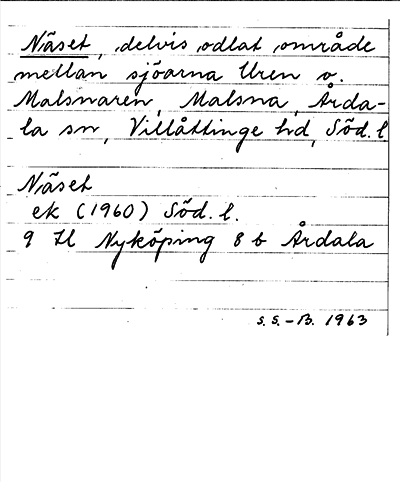 Näset, delvis odlat område
mellan sjöarna Uren o.
Malsnaren, Malsna, Årda-
la sn, Villåttinge hd, Söd. l
Näset
ek (1960) Söd. l.
9 H Nyköping 8 b Årdala
S. S. – B. 1963